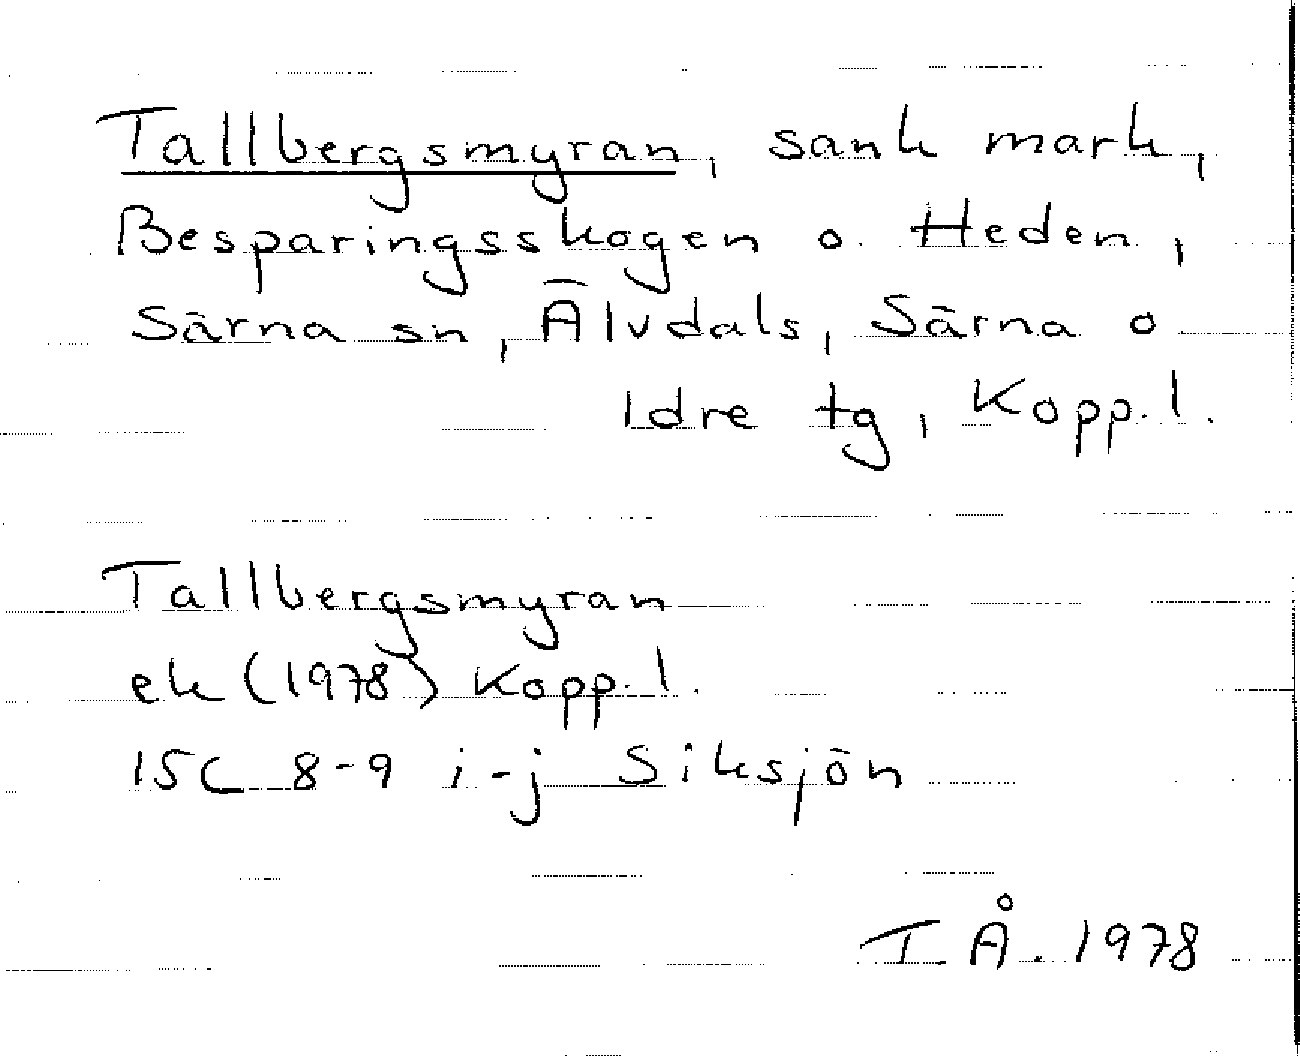 Tallbergsmyran, sank mark,
Besparingsskogen o. Heden,
Särna sn, Älvdals, Särna o
Idre tg, Kopp.l.
Tallbergsmyran
ek (1978) Kopp.l.
15C 8-9 i-j Siksjön
I Å. 1978